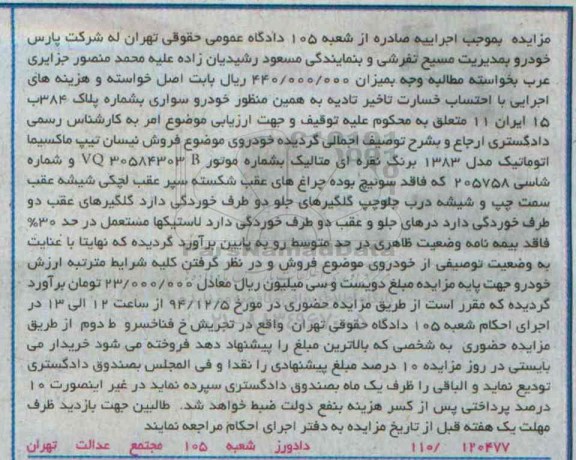 مزایده بموجب اجراییه صادره از شعبه ۱۰۵ دادگاه عمومی حقوقی تهران له شرکت پارس
خودرو بمدیریت مسیح تفرشی و بنمایندگی مسعود رشیدیان زاده علیه محمد منصور جزایری
عرب بخواسته مطالبه وجه بمیزان ۴۴۰/۰۰۰/۰۰۰ ریال بابت اصل خواسته و هزینه های
اجرایی با احتساب خسارت تاخیر تادیه به همین منظور خودرو سواری بشماره پلاک ۳۸۴ب
۱۵ ایران ۱۱ متعلق به محکوم علیه توقیف و جهت ارزیابی موضوع امر به کارشناس رسمی
دادگستری ارجاع و بشرح توصیف اجمالی گردیده خودروی موضوع فروش نیسان تیپ ماکسیما
اتوماتیک مدل ۱۳۸۳ برنگ نقره ای متالیک بشماره موتور VQ ۳۰۵۸۴۳۰۳ B و شماره
شاسی ۲۰۵۷۵۸ که فاقد سوئیچ بوده چراغ های عقب شکسته سپر عقب لچکی شیشه عقب
سمت چپ و شیشه درب جلوچپ گلگیرهای جلو دو طرف خوردگی دارد گلگیرهای عقب دو
طرف خوردگی دارد درهای جلو و عقب دو طرف خوردگی دارد لاستیکها مستعمل در حد ۳۰%
فاقد بیمه نامه وضعیت ظاهری در حد متوسط رو به پایین برآورد گردیده که نهایتا با عنایت
به وضعیت توصیفی از خودروی موضوع فروش و در نظر گرفتن کلیه شرایط مترتبه ارزش
خودرو جهت پایه مزایده مبلغ دویست و سی میلیون ریال معادل ۲۳/۰۰۰/۰۰۰ تومان برآورد
گردیده که مقرر است از طریق مزایده حضوری در مورخ ۹۴/۱۲/۵ از ساعت ۱۲ الی ۱۳ در
اجرای احکام شعبه ۱۰۵ دادگاه حقوقی تهران واقع در تجریش خ فناخسرو ط دوم از طریق
مزایده حضوری به شخصی که بالاترین مبلغ را پیشنهاد دهد فروخته می شود خریدار می
بایستی در روز مزایده ۱۰ درصد مبلغ پیشنهادی را نقدا و فی المجلس بصندوق دادگستری
تودیع نماید و الباقی را ظرف یک ماه بصندوق دادگستری سپرده نماید در غیر اینصورت ۱۰
درصد پرداختی پس از کسر هزینه بنفع دولت ضبط خواهد شد. طالبین جهت بازدید ظرف
مهلت یک هفته قبل از تاریخ مزایده به دفتر اجرای احکام مراجعه نمایند
۱۲۰۴۷۷ /۱۱۰ دادورز شعبه ۱۰۵ مجتمع عدالت تهران